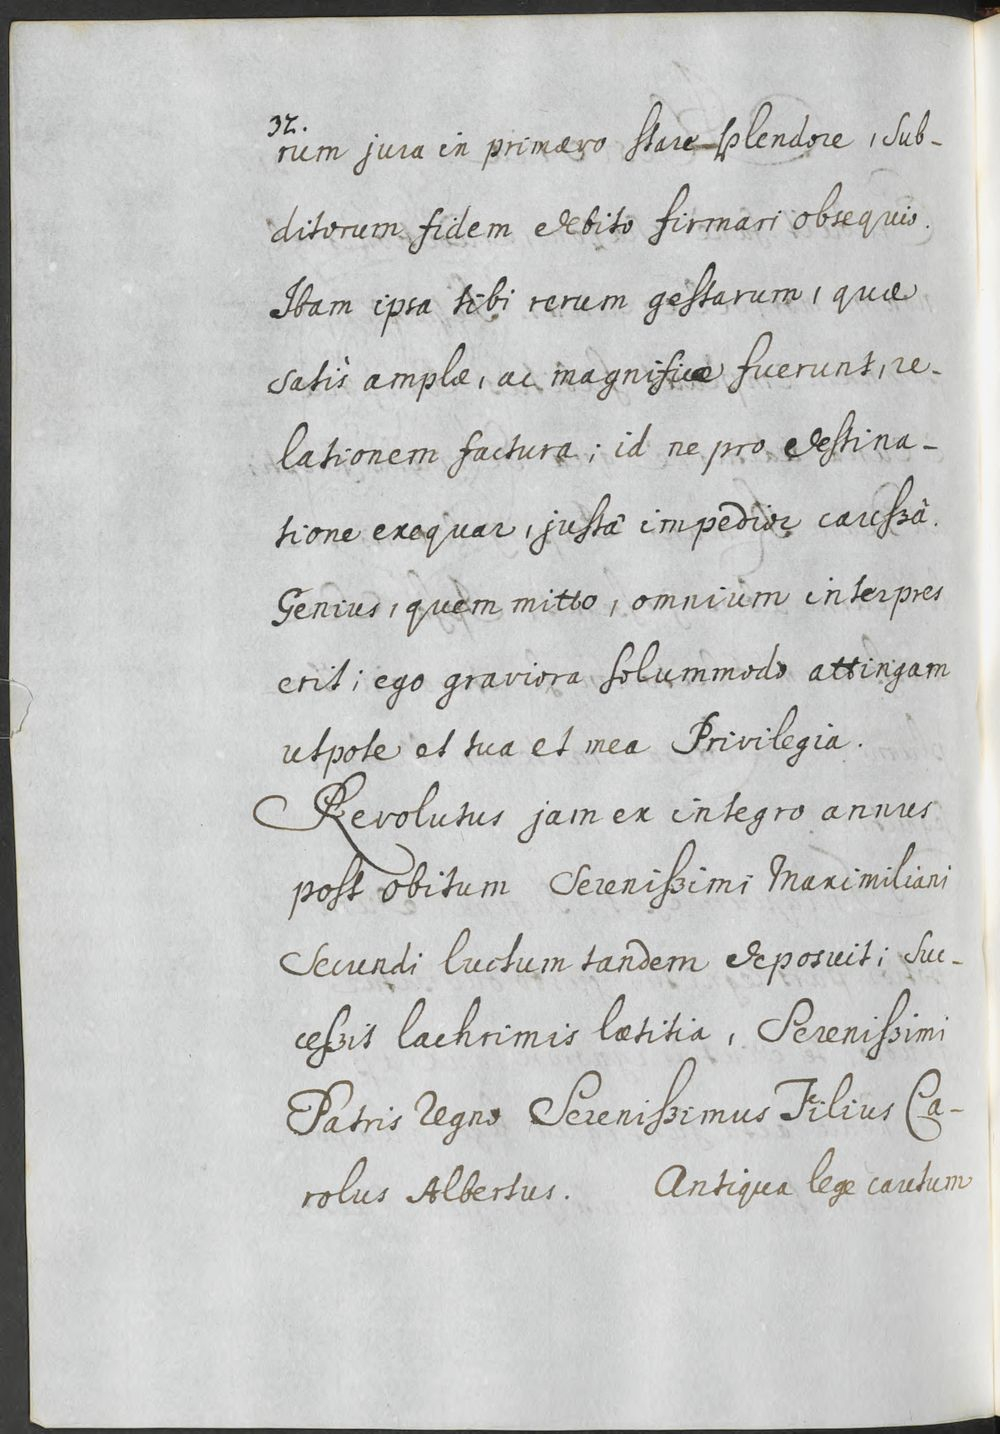 32.
rum jura in primævo stare splendore, sub-
ditorum fidem debito firmari obsequio.
Ibam ipsa tibi rerum gestarum, quæ
satis amplæ, ac magnificæ fuerunt, re-
lationem factura; id ne pro destina-
tione exequar, justâ impedior caussâ.
Genius, quem mitto, omnium interpres
erit; ego graviora solummodo attingam
utpote et tua et mea Privilegia.
Revolutus jam ex integro annus
post obitum Serenissimi Maximiliani
Secundi luctum tandem deposuit; suc-
cessit lachrimis lætitia, Serenissimi
Patris regno Serenissimus Filius Ca-
rolus Albertus. Antiqua lege cautum